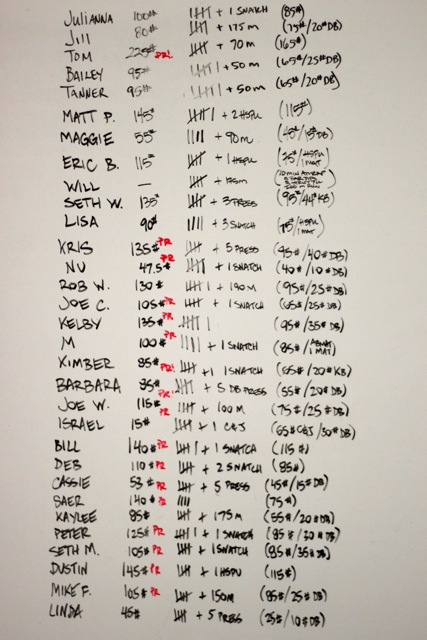 Julianna 100# |||| + 1 SNATCH (85#)
Jill 80# |||| + 175 m (75#/20# DB)
TOM 225# PR! |||| + 70 m (165#)
BAILEY 95# |||| | + 50 m (65#/25# DB)
TANNER 95# |||| | + 50 m (65#/20# DB)
MATT P. 145# |||| | + 2 HSPU (115#)
MAGGIE 55# |||| + 90 m (45#/15# DB)
ERIC B. 115# |||| + 1 HSPU (75#/HSPU 1 MAT)
WILL —
SETH W. 135# |||| + 3 PRESS (95#/44# KB)
LISA 90# |||| + 3 SNATCH (75#/HSPU 1 MAT)
KRIS 135# PR |||| + 5 PRESS (95#/40# DB)
NU 47.5# PR |||| | + 1 SNATCH (40#/10# DB)
ROB W. 130# |||| | + 190 m (95#/25# DB)
JOE C. 105# PR |||| + 1 SNATCH (65#/25# DB)
KELBY 135# PR |||| | (95#/35# DB)
M 100# PR |||| + 1 SNATCH (85#/ABMAT 1 MAT)
KIMBER 85# PR! |||| + 1 SNATCH (65#/20# KB)
BARBARA 95# PR! |||| + 5 DB PRESS (55#/20# DB)
JOE W. 115# PR |||| + 100 M (75#/25# DB)
ISRAEL 15# |||| + 1 C&J (65# C&J/30# DB)
BILL 140# PR |||| | + 1 SNATCH (115#)
DEB 110# PR |||| + 2 SNATCH (85#)
CASSIE 53# PR |||| + 5 PRESS (45#/15# DB)
SAER 140# PR |||| (75#)
KAYLEE 85# |||| + 175 M (55#/20# DB)
PETER 125# PR |||| | + 1 SNATCH (85#/30# DB)
SETH M. 105# PR |||| + 1 SNATCH (85#/35# DB)
DUSTIN 145# PR |||| + 1 HSPU (115#)
MIKE F. 105# PR |||| + 150 M (85#/25# DB)
LINDA 45# |||| + 5 PRESS (25#/10# DB)